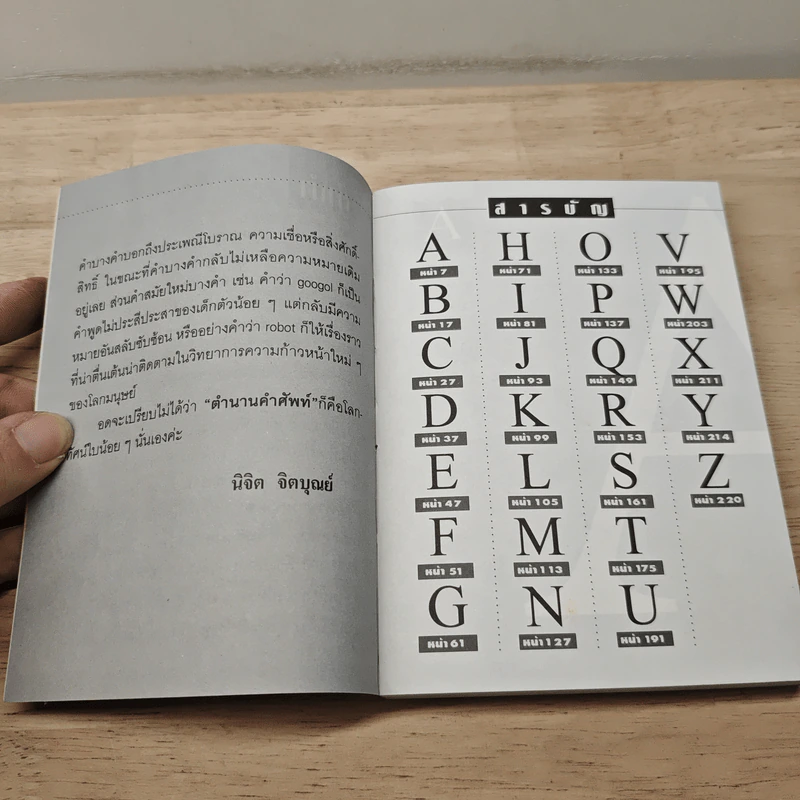 คำบางคำบอกถึงประเพณีโบราณ ความเชื่อหรือสิ่งศักดิ์-
สิทธิ์ ในขณะที่คำบางคำกลับไม่เหลือความหมายเดิม
อยู่เลย ส่วนคำสมัยใหม่บางคำ เช่น คำว่า googol ก็เป็น
คำพูดไม่ประสีประสาของเด็กตัวน้อย ๆ แต่กลับมีความ
หมายอันสลับซับซ้อน หรืออย่างคำว่า robot ก็ให้เรื่องราว
ที่น่าตื่นเต้นน่าติดตามในวิทยาการความก้าวหน้าใหม่ ๆ
ของโลกมนุษย์
อดจะเปรียบไม่ได้ว่า "ตำนานคำศัพท์" ก็คือโลก-
ทัศน์ใบน้อย ๆ นั่นเองค่ะ
นิจิต จิตบุณย์
สารบัญ
A
หน้า 7
B
หน้า 17
C
หน้า 27
D
หน้า 37
E
หน้า 47
F
หน้า 51
G
หน้า 61
H
หน้า 71
I
หน้า 81
J
หน้า 93
K
หน้า 99
L
หน้า 105
M
หน้า 113
N
หน้า 127
O
หน้า 133
P
หน้า 137
Q
หน้า 149
R
หน้า 153
S
หน้า 161
T
หน้า 175
U
หน้า 191
V
หน้า 195
W
หน้า 203
X
หน้า 211
Y
หน้า 214
Z
หน้า 220